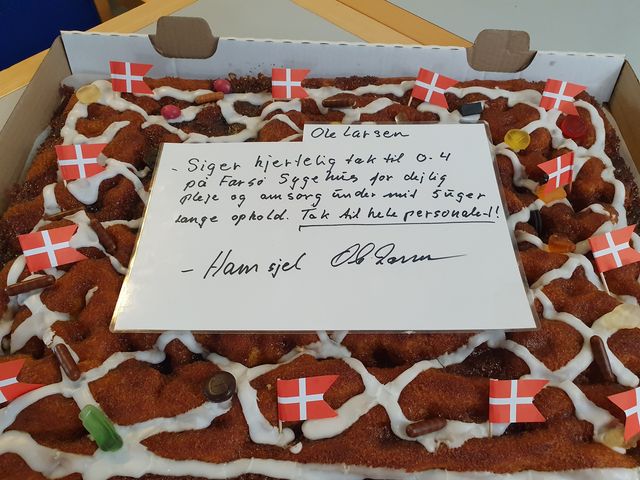 Ole Larsen
- Siger hjertelig tak til O-4
på Farsø Sygehus for dejlig
pleje og omsorg under mit 5 uger
lange ophold. Tak til hele personalet!
- Ham sjel Ole Larsen